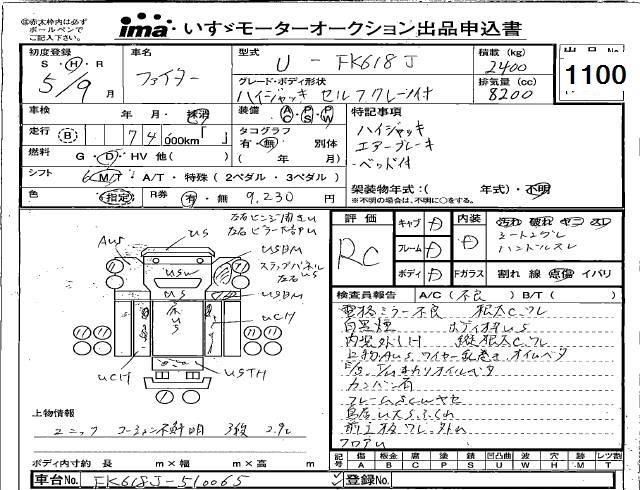 ㊟太枠内は必ず
ボールペンで
ご記入下さい。
ima いすゞモーターオークション出品申込書
初度登録 車名 型式 積載 (kg) 出品No.
S・H・R ファイター U - FK618J 2400
5/9月 グレード・ボディ形状 排気量(cc) 1100
ハイジャッキ セルフクレーン付 8200
車検 年 月・抹消 装備 AC PS PW 特記事項
走行 B 74,000km「 」 タコグラフ ハイジャッキ
有・無 別体 エアーブレーキ
燃料 G・D・HV 他( ) ( 年 月) -ベッド付
シフト 6 M/T・A/T・特殊(2ペダル・3ペダル)
架装物年式:( 年式)・不明
色 指定 R券 有・無 9,230円
※不明の場合は、不明に○をする。
左右ピンジ開きU
左右ピラー下合中U
AUS US USBM
ステップパネル
左右US
USW
US USBM
UCH
UCH USTH
評価 キャブ D 内装 D 汚れ 破れ ヤニ スレ
RC フレーム D シートコゲ穴
ハンドルスレ
ボディ D Fガラス 割れ 線 点傷 イバリ
検査員報告 A/C(不良) B/T( )
電格ミラー不良 根太Cワレ
白黒煙 ボディ枠US
内装外しH 縦根太Cワレ
上物AUS ワイヤー乱巻き オイルベタ
E/g、T/Mまわりオイルベタ
カンバン有
フレームSCUヤセ
鳥居UスSふくめ
前立板ワレ、外れ
フロアU
上物情報
ユニック ラジコン不鮮明 3段 2.9t
記号 傷A 板金B 腐C 塗P 錆S 凹凸曲U 波W 穴H 跡M レツ割T
ボディ内寸約 長 m×幅 m×高 m
車台No. FK618J-510065 登録No.